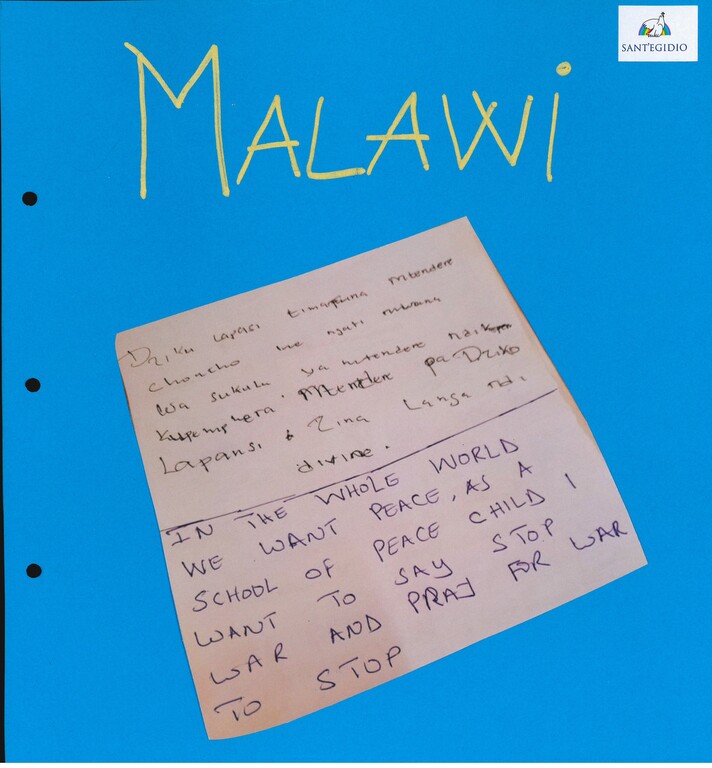 SANT'EGIDIO
MALAWi
Dziku Lapasi timafuna mtendere
choncho ine ngati mwana
wa sukulu ya mtendere ndi
kupemphera. Mtendere pa Dziko
Lapansi Zina Langa ndi
divine.
IN THE WHOLE WORLD
WE WANT PEACE, AS A
SCHOOL OF PEACE CHILD I
WANT TO SAY STOP
WAR AND PRAY FOR WAR
TO STOP